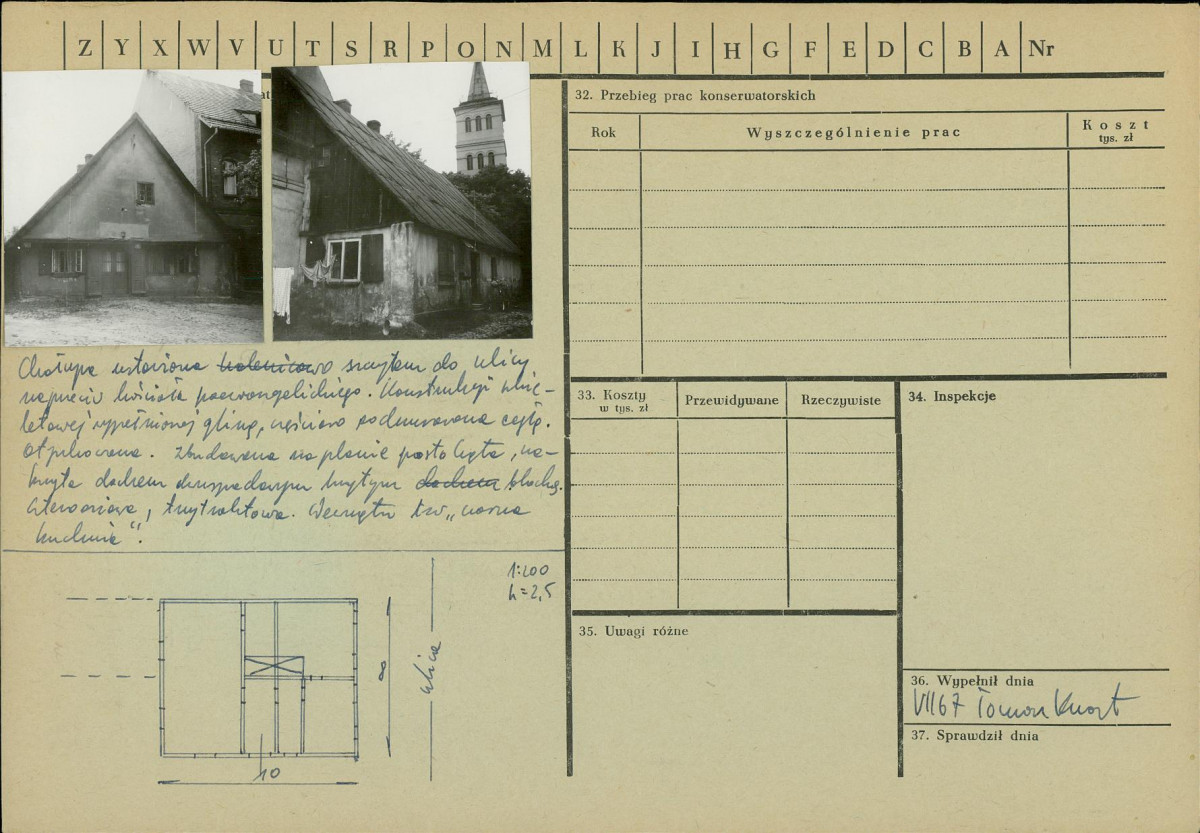 Z Y X W V U T S R P O N M L K J I H G F E D C B A Nr
32. Przebieg prac konserwatorskich
Rok Wyszczególnienie prac Koszt
tys. zł
Chałupa ustawiona szczytem do ulicy
naprzeciw kościoła poewangelickiego. Konstrukcji
wypełnionej gliną, częściowo podmurowana cegłą.
Otynkowana. Zbudowana na planie prostokąta, na-
kryta dachem dwuspadowym krytym blachą.
, trzytraktowa. Wewnątrz tzw „czarna
kuchnia".
33. Koszty
w tys. zł
Przewidywane Rzeczywiste
34. Inspekcje
1:200
h=2,5
8
ulica
10
35. Uwagi różne
36. Wypełnił dnia
VII 67
37. Sprawdził dnia